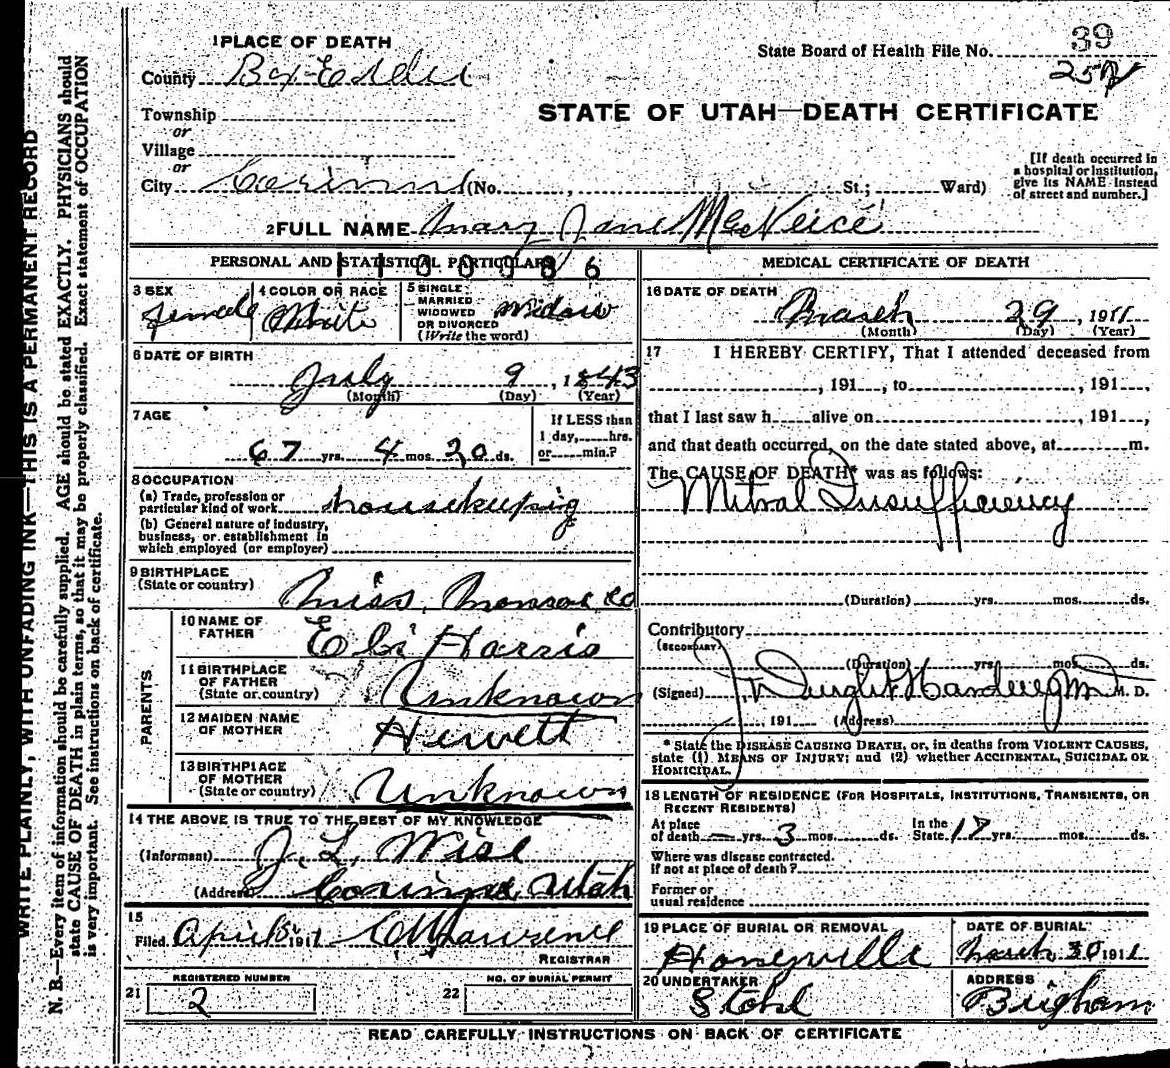 WRITE PLAINLY, WITH UNFADING INK—THIS IS A PERMANENT RECORD
N. B.—Every item of information should be carefully supplied. AGE should be stated EXACTLY. PHYSICIANS should
state CAUSE OF DEATH in plain terms, so that it may be properly classified. Exact statement of OCCUPATION
is very important. See instructions on back of certificate.
1 PLACE OF DEATH
County Box Elder
Township
or
Village
or
City Corinne (No. , St.; Ward)
State Board of Health File No. 39
252
STATE OF UTAH—DEATH CERTIFICATE
[If death occurred in
a hospital or institution,
give its NAME instead
of street and number.]
2 FULL NAME Mary Jane MacNeice
PERSONAL AND STATISTICAL PARTICULARS
1100986
3 SEX
female
4 COLOR OR RACE
White
5 SINGLE,
MARRIED
WIDOWED
OR DIVORCED
(Write the word)
widow
6 DATE OF BIRTH
July 9, 1843
(Month) (Day) (Year)
7 AGE
67 yrs. 4 mos. 20 ds.
If LESS than
1 day,.....hrs.
or.....min.?
8 OCCUPATION
(a) Trade, profession or
particular kind of work housekeeping
(b) General nature of industry,
business, or establishment in
which employed (or employer)
9 BIRTHPLACE
(State or country) Miss. Monroe Co
PARENTS
10 NAME OF
FATHER Eli Harris
11 BIRTHPLACE
OF FATHER
(State or country) Unknown
12 MAIDEN NAME
OF MOTHER Hewett
13 BIRTHPLACE
OF MOTHER
(State or country) Unknown
14 THE ABOVE IS TRUE TO THE BEST OF MY KNOWLEDGE
(Informant) J. L. Wise
(Address) Corinne Utah
15
Filed April 1911 Lawrence
REGISTRAR
REGISTERED NUMBER
21 2
NO. OF BURIAL PERMIT
22
MEDICAL CERTIFICATE OF DEATH
16 DATE OF DEATH
March 29, 1911
(Month) (Day) (Year)
17 I HEREBY CERTIFY, That I attended deceased from
, 191 , to , 191 ,
that I last saw h alive on , 191 ,
and that death occurred, on the date stated above, at m.
The CAUSE OF DEATH* was as follows:
Mitral Insufficiency
(Duration) yrs. mos. ds.
Contributory
(SECONDARY)
(Duration) yrs. mos. ds.
(Signed) M. D.
, 191 (Address)
* State the DISEASE CAUSING DEATH, or, in deaths from VIOLENT CAUSES,
state (1) MEANS OF INJURY; and (2) whether ACCIDENTAL, SUICIDAL OR
HOMICIDAL.
18 LENGTH OF RESIDENCE (FOR HOSPITALS, INSTITUTIONS, TRANSIENTS, OR
RECENT RESIDENTS)
At place
of death — yrs. 3 mos. ds.
In the
State 17 yrs. mos. ds.
Where was disease contracted.
if not at place of death?
Former or
usual residence
19 PLACE OF BURIAL OR REMOVAL
Honeyville
DATE OF BURIAL
March 30 1911
20 UNDERTAKER
Stohl
ADDRESS
Brigham
READ CAREFULLY INSTRUCTIONS ON BACK OF CERTIFICATE